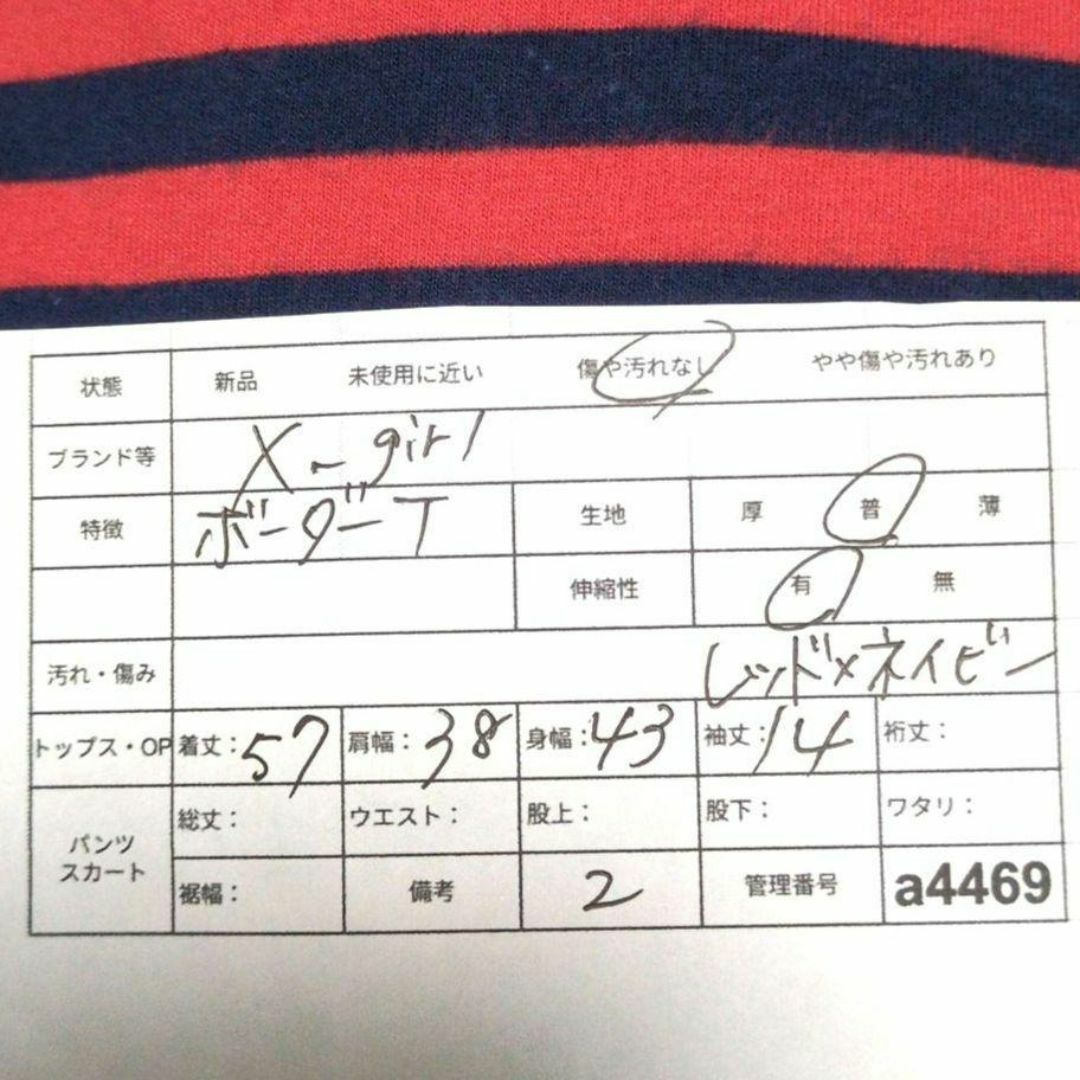 状態 新品 未使用に近い 傷や汚れなし やや傷や汚れあり
ブランド等 X-girl
特徴 ボーダーT 生地 厚 普 薄
伸縮性 有 無
汚れ・傷み レッド×ネイビー
トップス・OP 着丈：57 肩幅：38 身幅：43 袖丈：14 裄丈：
パンツ スカート 総丈： ウエスト： 股上： 股下： ワタリ：
裾幅： 備考 2 管理番号 a4469